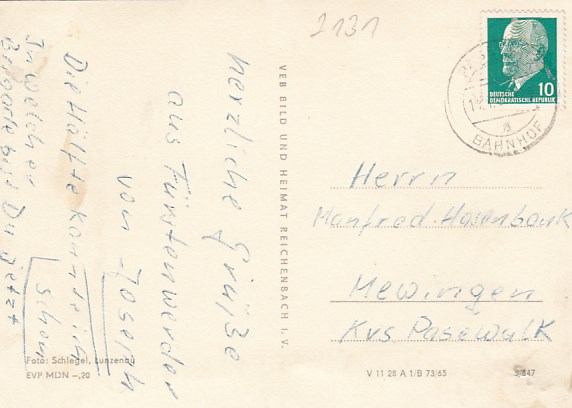 2131
DEUTSCHE
DEMOKRATISCHE REPUBLIK
10
BAHNHOF
a
Herzliche Grüße
aus Fürstenwerder
von Joseph
Die Hälfte kannte ich
schon
In welcher
Du jetzt
VEB BILD UND HEIMAT REICHENBACH I. V.
Herrn
Manfred Hasenbank
Mewingen
Krs Pasewalk
Foto: Schlegel, Lunzenau
EVP MDN –,20
V 11 28 A 1/B 73/65